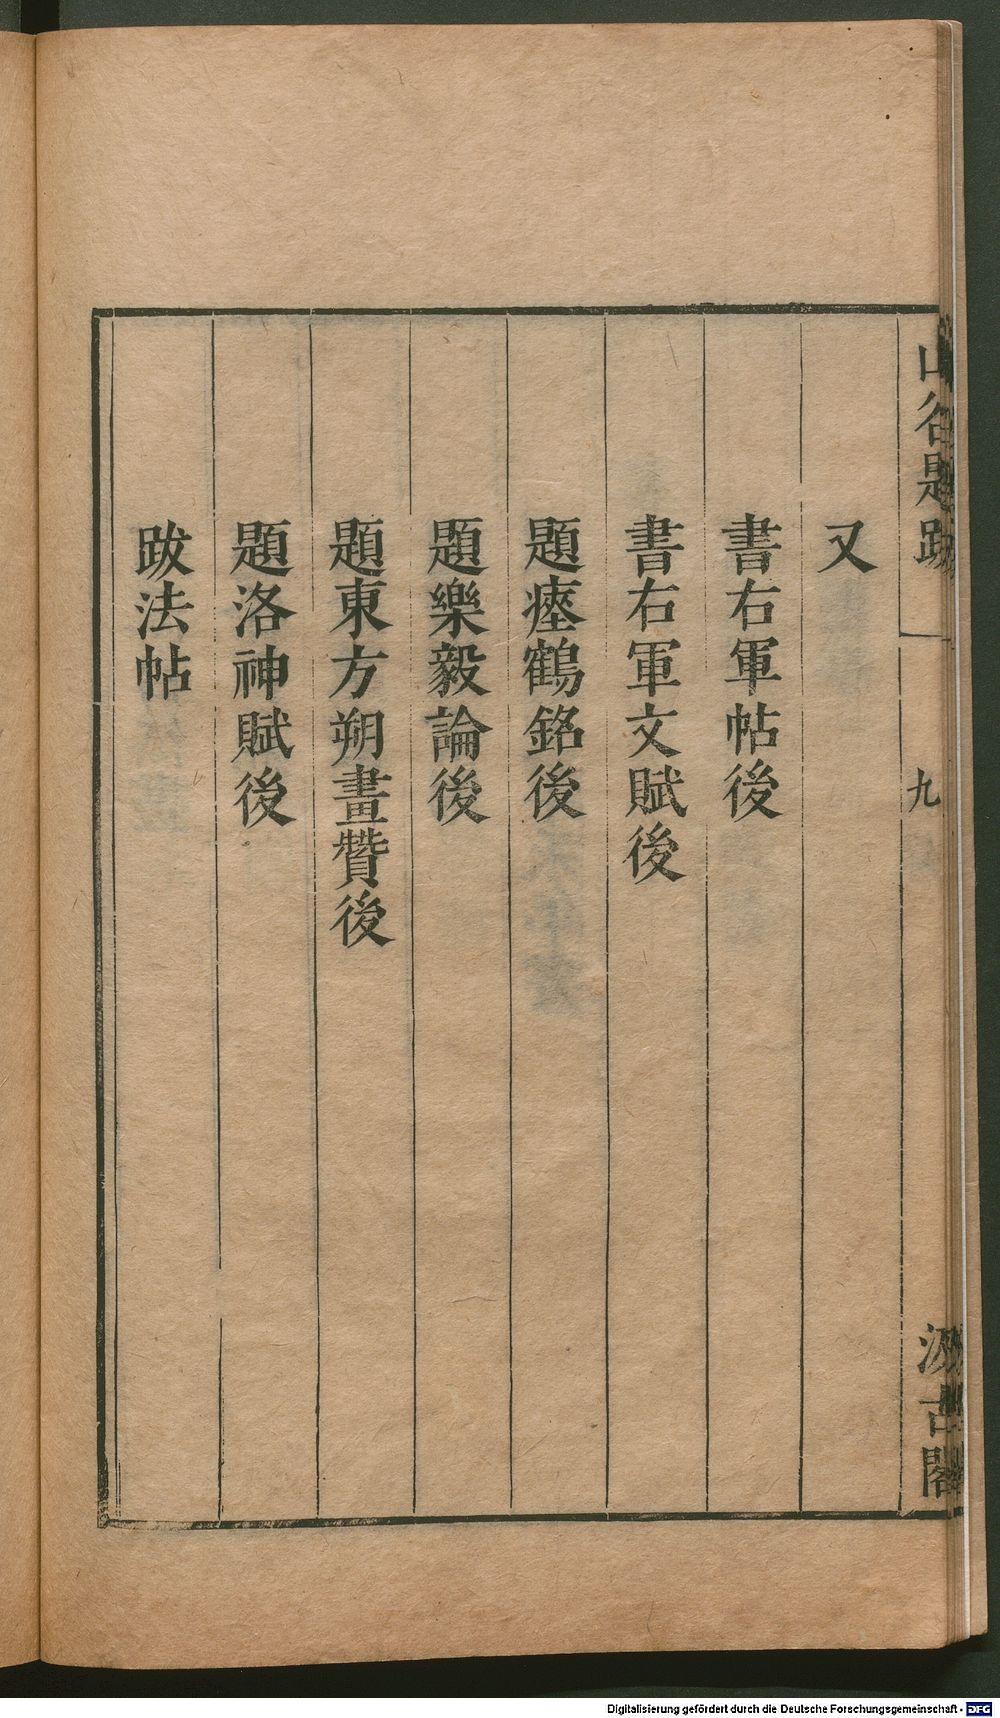 山谷題跋
九
汲古閣
又
書右軍帖後
書右軍文賦後
題瘞鶴銘後
題樂毅論後
題東方朔畫贊後
題洛神賦後
跋法帖
Digitalisierung gefördert durch die Deutsche Forschungsgemeinschaft - DFG